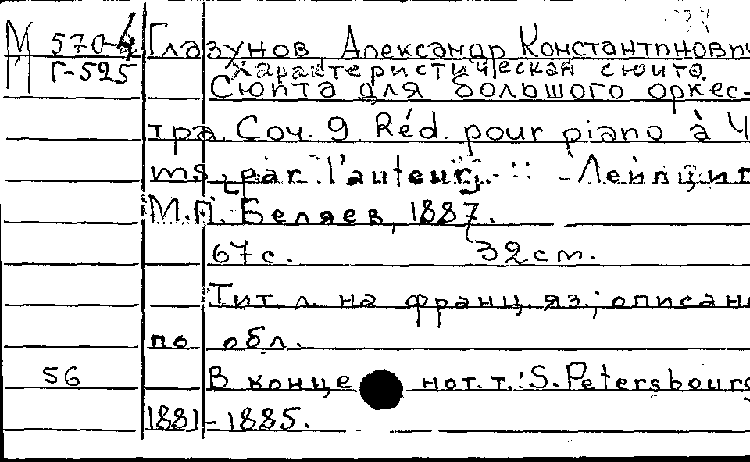 М 570-4 Глазунов, Александр Константинович
Г-525 Характеристическая сюита.
Сюита для большого оркес-
тра. Соч. 9. Réd. pour piano à 4
ms. par l'auteur. - Лейпциг
М.П. Беляев, 1887.
67 с. 32 cm.
Тит. л. на франц. яз.; описан
по обл.
56 В конце нот. т.: S. Petersbourg
1881-1885.